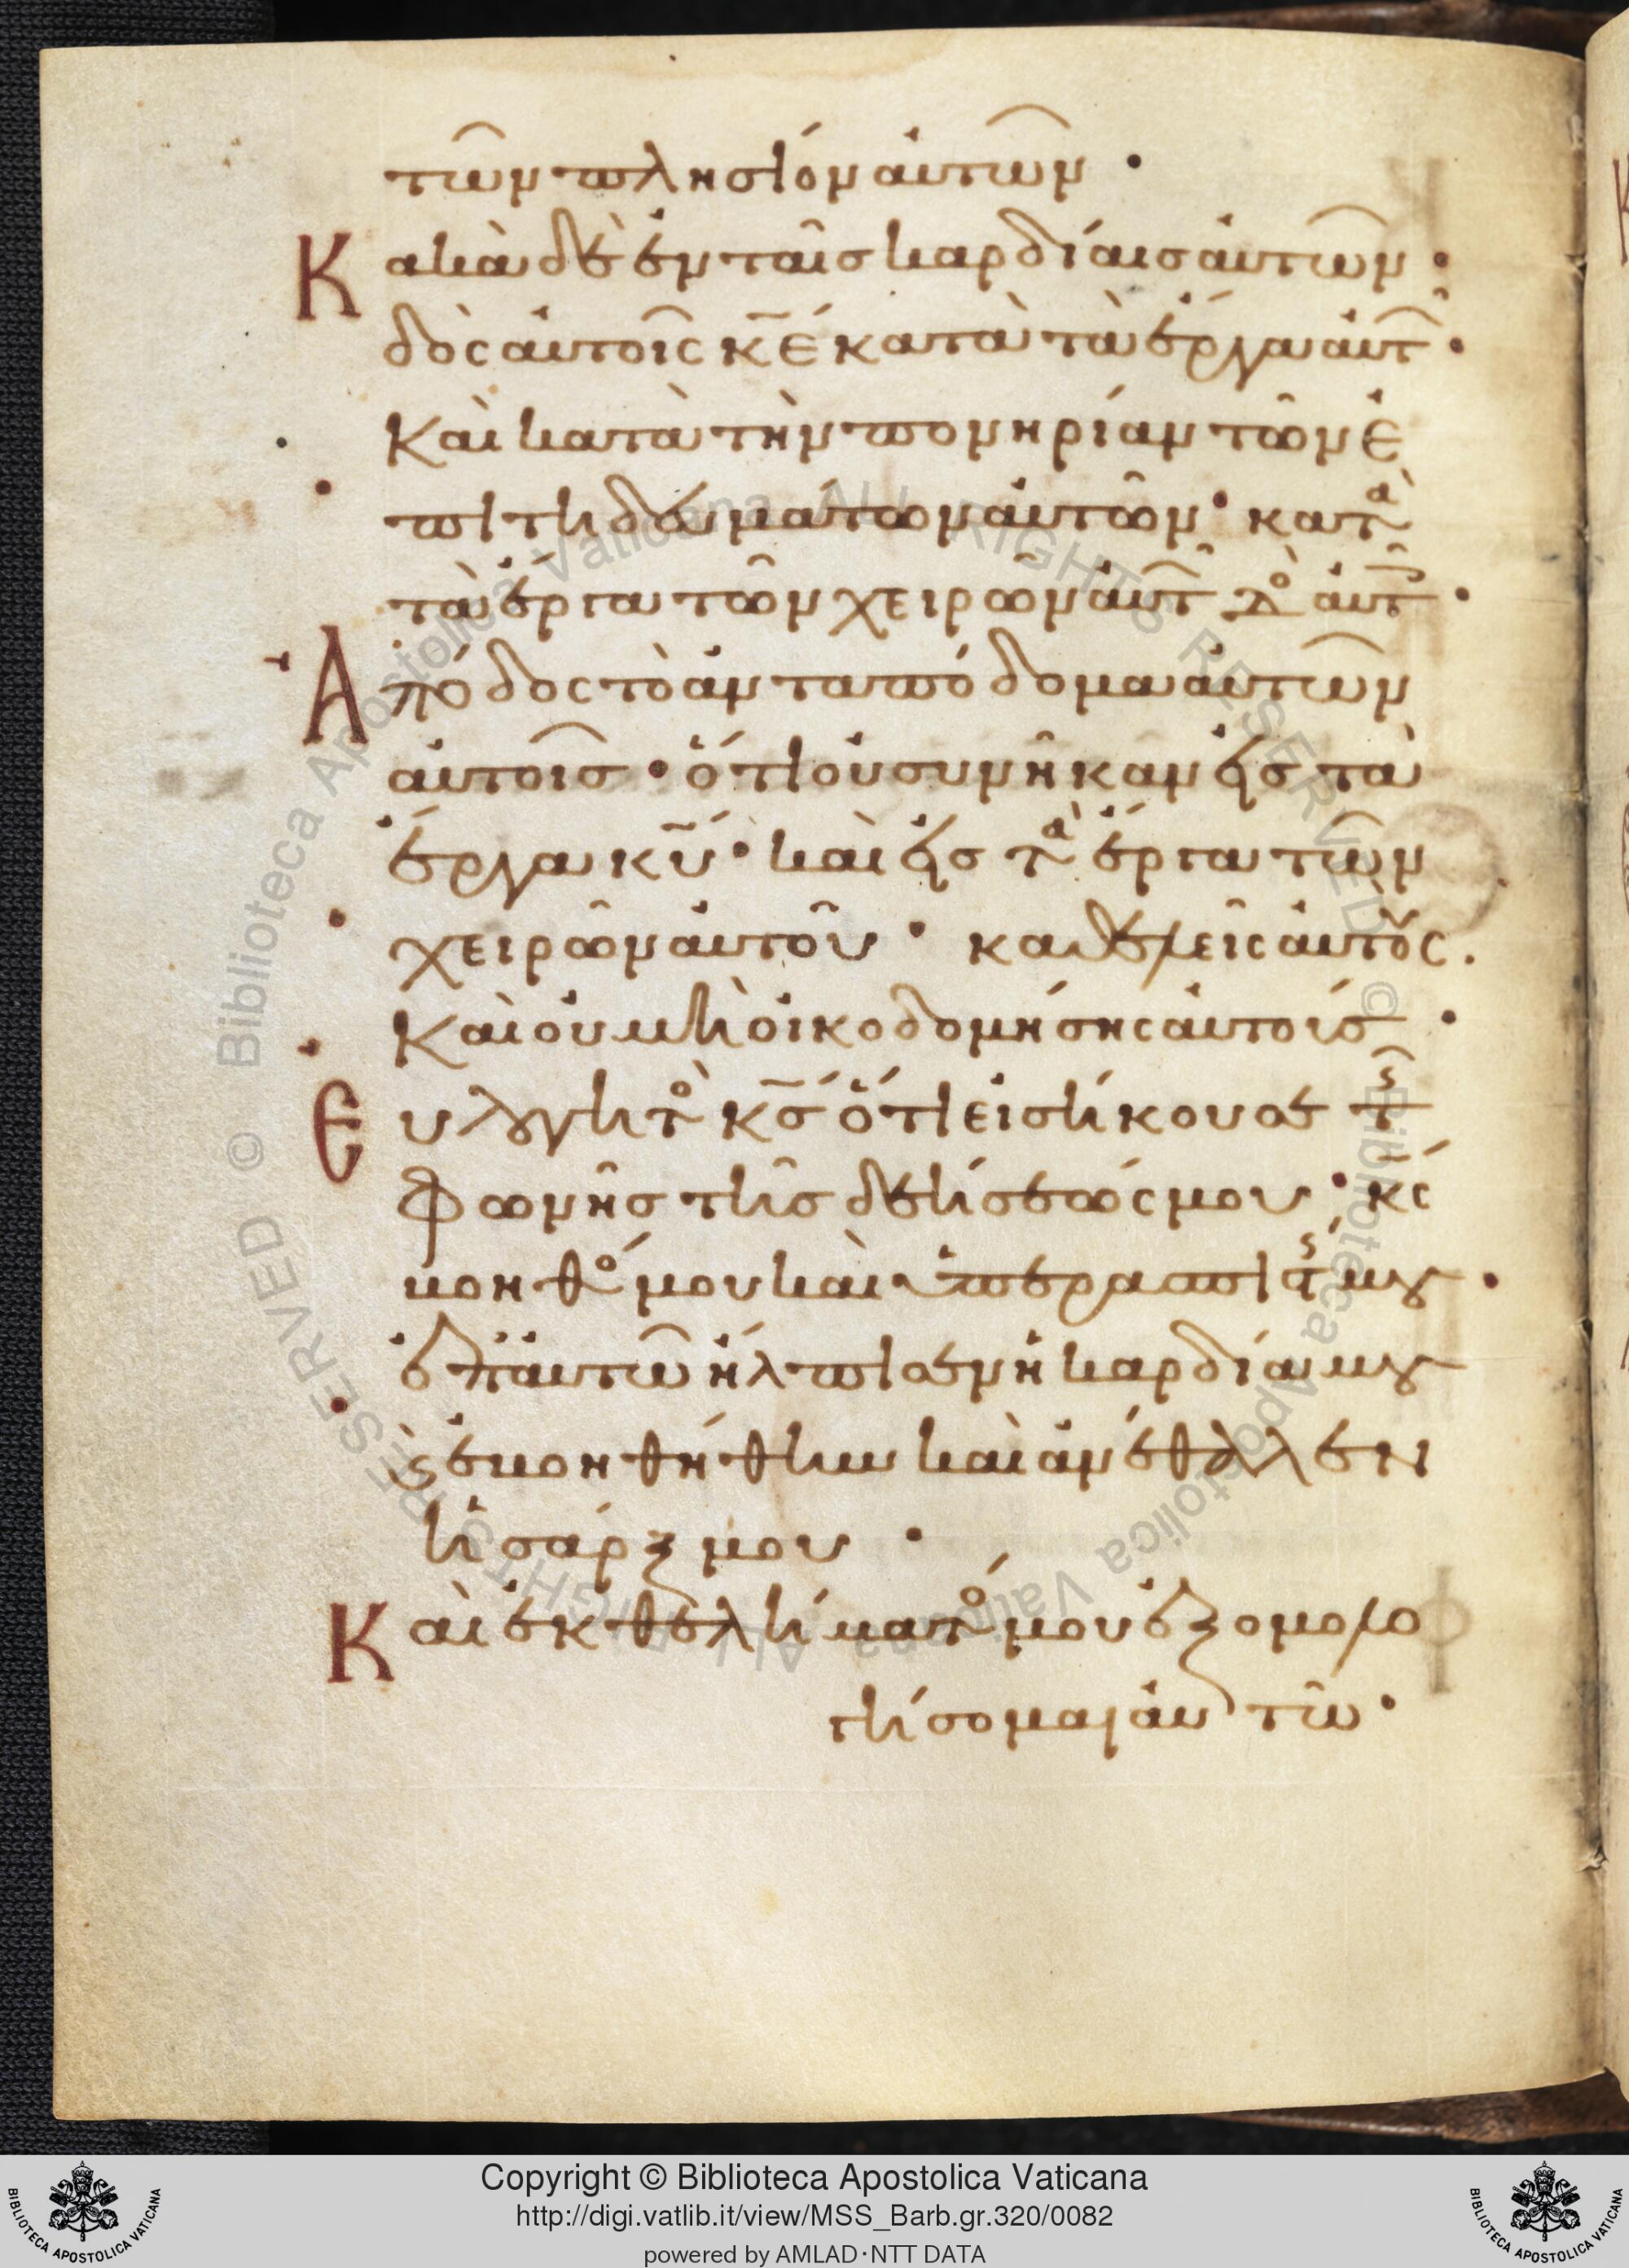 τῶν πλησίον αὐτῶν ·
Κακὰ δὲ ἐν ταῖς καρδίαις αὐτῶν ·
δὸς αὐτοῖς κ̅ε̅ κατὰ τὰ ἔργα αὐτ ·
Καὶ κατὰ τὴν πονηρίαν τῶν ἐ
πιτηδευμάτων αὐτῶν · κατὰ
τὰ ἔργα τῶν χειρῶν αὐτ δὸ αὐτ ·
Ἀπόδος τὸ ἀνταπόδομα αὐτῶν
αὐτοῖς · ὅτι οὐ συνῆκαν εἰς τὰ
ἔργα κ̅υ̅ · καὶ εἰς τὰ ἔργα τῶν
χειρῶν αὐτοῦ · καθελεῖς αὐτοὺς .
Καὶ οὐ μὴ οἰκοδομήσῃς αὐτούς ·
Ευλογητὸ κ̅ς̅ ὅτι εἰσήκουσε τ
φωνῆς τῆς δεήσεώς μου · κ̅ς̅
βοηθό μου καὶ ὑπερασπιστ μου ·
ἐπ αὐτῶ ἤλπισεν ἡ καρδία μου
ϗ ἐβοηθήθην καὶ ἀνέθαλεν
ἡ σάρξ μου ·
Καὶ ἐκ θελήματό μου ἐξομολο
γήσομαι αὐτῶ ·
Copyright © Biblioteca Apostolica Vaticana
http://digi.vatlib.it/view/MSS_Barb.gr.320/0082
powered by AMLAD·NTT DATA
BIBLIOTECA APOSTOLICA VATICANA
BIBLIOTECA APOSTOLICA VATICANA
© Biblioteca Apostolica Vaticana ALL RIGHTS RESERVED © Biblioteca Apostolica Vaticana ALL RIGHTS RESERVED